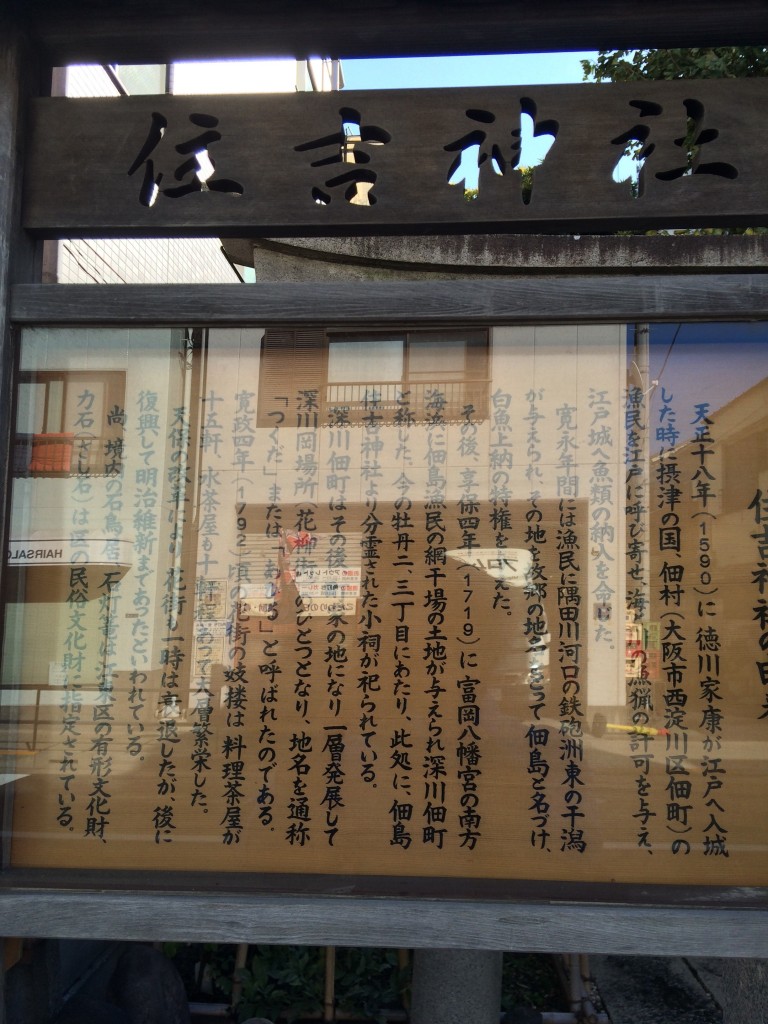 住吉神社
住吉神社の由来
天正十八年(1590)に徳川家康が江戸へ入城
した時に摂津の国、佃村(大阪市西淀川区佃町)の
漁民を江戸に呼び寄せ、海川の漁猟の許可を与え、
江戸城へ魚類の納入を命じた。
寛永年間には漁民に隅田川河口の鉄砲洲東の干潟
が与えられ、その地を故郷の地名をとって佃島と名づけ、
白魚上納の特権を与えた。
その後、享保四年(1719)に富岡八幡宮の南方
海浜に佃島漁民の網干場の土地が与えられ深川佃町
と称した、今の牡丹二、三丁目にあたり、此処に、佃島
住吉神社より分霊された小祠が祀られている。
深川佃町はその後 家の地になり一層発展して
深川岡場所、花柳街のひとつとなり、地名を通称
「つくだ」または「あひる」と呼ばれたのである。
寛政四年(1792)頃の花街の妓楼は料理茶屋が
十五軒、水茶屋も十軒程あって大層繁栄した。
天保の改革により、花街も一時は衰退したが、後に
復興して明治維新まであったといわれている。
尚、境内の石鳥居、石灯篭は江東区の有形文化財、
力石(さし石)は区の民俗文化財に指定されている。
HAIRSALO